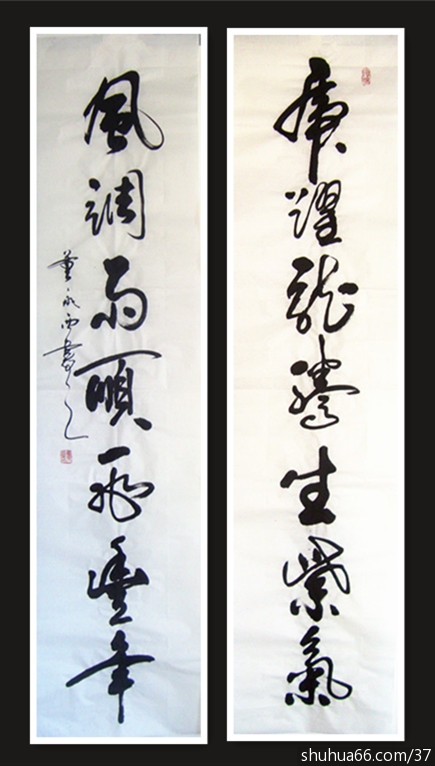 虎躍龍騰生紫氣
風調雨順兆豐年
董永西書
shuhua66.com/37